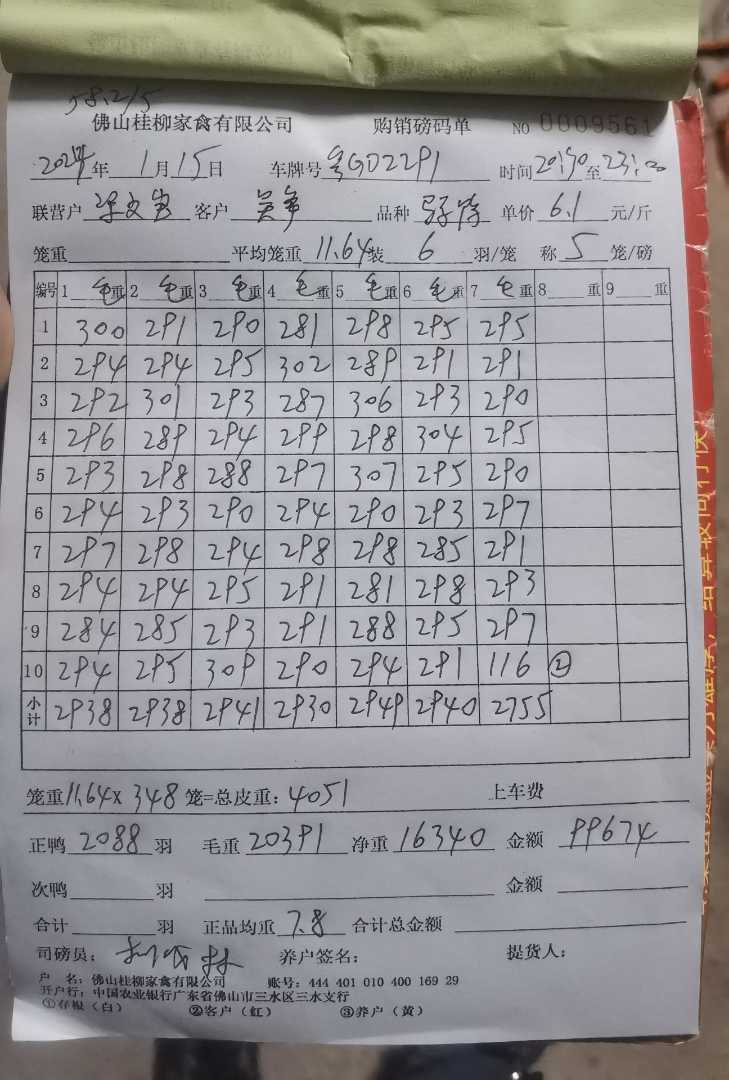 58.2/5
佛山桂柳家禽有限公司 购销磅码单 NO 0009561
2024年 1月15日 车牌号 粤GD2291 时间 20:90至23:00
联营户 客户 吴 品种 单价 6.1 元/斤
笼重 平均笼重 11.64 装 6 羽/笼 称 5 笼/磅
编号 1 毛重 2 毛重 3 毛重 4 毛重 5 毛重 6 毛重 7 毛重 8 重 9 重
1 300 291 290 281 298 295 295
2 294 294 295 302 289 291 291
3 292 301 293 287 306 293 290
4 296 289 294 299 298 304 295
5 293 298 288 297 307 295 290
6 294 293 290 294 290 293 297
7 297 298 294 298 298 285 291
8 294 294 295 291 281 298 293
9 284 285 293 291 288 295 297
10 294 295 309 290 294 291 116 ②
小计 2938 2938 2941 2930 2949 2940 2755
笼重11.64X 348 笼=总皮重: 4051 上车费
正鸭 2088 羽 毛重 20391 净重 16340 金额 99674
次鸭 羽 金额
合计 羽 正品均重 7.8 合计总金额
司磅员: 林 养户签名: 提货人:
户 名: 佛山桂柳家禽有限公司 账号: 444 401 010 400 169 29
开户行: 中国农业银行广东省佛山市三水区三水支行
①存根(白) ②客户(红) ③养户(黄)